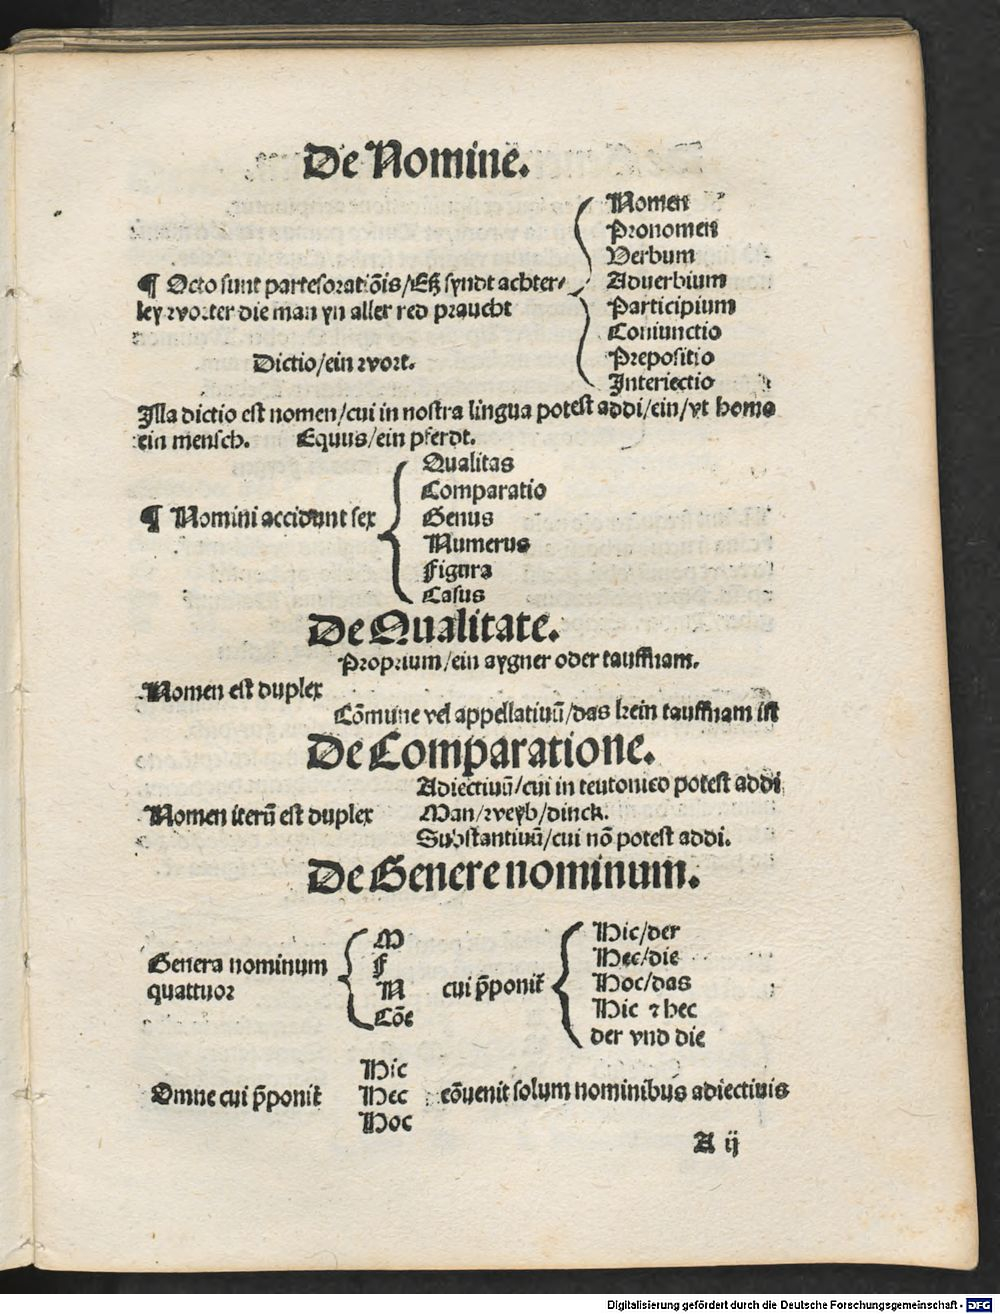 De Nomine.
¶ Octo sunt partes oratiōis/Eß syndt achter-
ley worter die man yn aller red praucht
Nomen
Pronomen
Verbum
Aduerbium
Participium
Coniunctio
Prepositio
Interiectio
Dictio/ein wort.
Illa dictio est nomen/cui in nostra lingua potest addi/ein/vt homo
ein mensch. Equus/ein pferdt.
¶ Nomini accidunt sex
Qualitas
Comparatio
Genus
Numerus
Figura
Casus
De Qualitate.
Proprium/ein aygner oder tauffnam.
Nomen est duplex
Cōmune vel appellatiuū/das kein tauffnam ist
De Comparatione.
Adiectiuū/cui in teutonico potest addi
Nomen iterū est duplex
Man/weyb/dinck.
Substantiuū/cui nō potest addi.
De Genere nominum.
Genera nominum
quattuor
M
F
N
Cōe
cui p̄ponit̄
Hic/der
Hec/die
Hoc/das
Hic ⁊ hec
der vnd die
Omne cui p̄ponit̄
Hic
Hec
Hoc
cōuenit solum nominibus adiectiuis
A ij
Digitalisierung gefördert durch die Deutsche Forschungsgemeinschaft - DFG